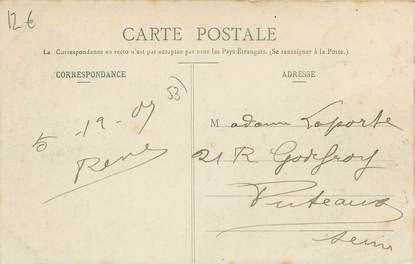 12€
CARTE POSTALE
La Correspondance au recto n'est pas acceptée par tous les Pays Étrangers. (Se renseigner à la Poste.)
CORRESPONDANCE
ADRESSE
53)
5 -19-09
René
Madame Laporte
21 R Godefroy
Puteaux
Seine